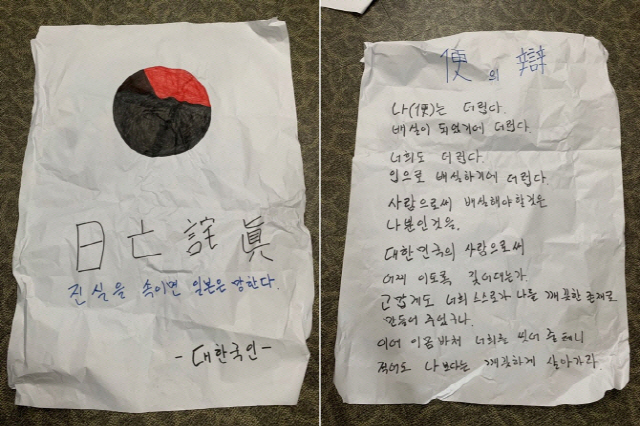 日亡詫眞
진실을 속이면 일본은 망한다.
-대한국인-
便의 辯
나(便)는 더럽다.
배설이 되었기에 더럽다.
너희도 더럽다.
입으로 배설하기에 더럽다.
사람으로써 배설해야할것은
나뿐인것을.
대한민국의 사람으로써
어찌 이토록 짖어대는가
고맙게도 너희 스스로가 나를 깨끗한 존재로
만들어 주었구나.
이어 이곳 바쳐 너희를 씻어 줄테니
적어도 나 보다는 깨끗하게 살아가라.